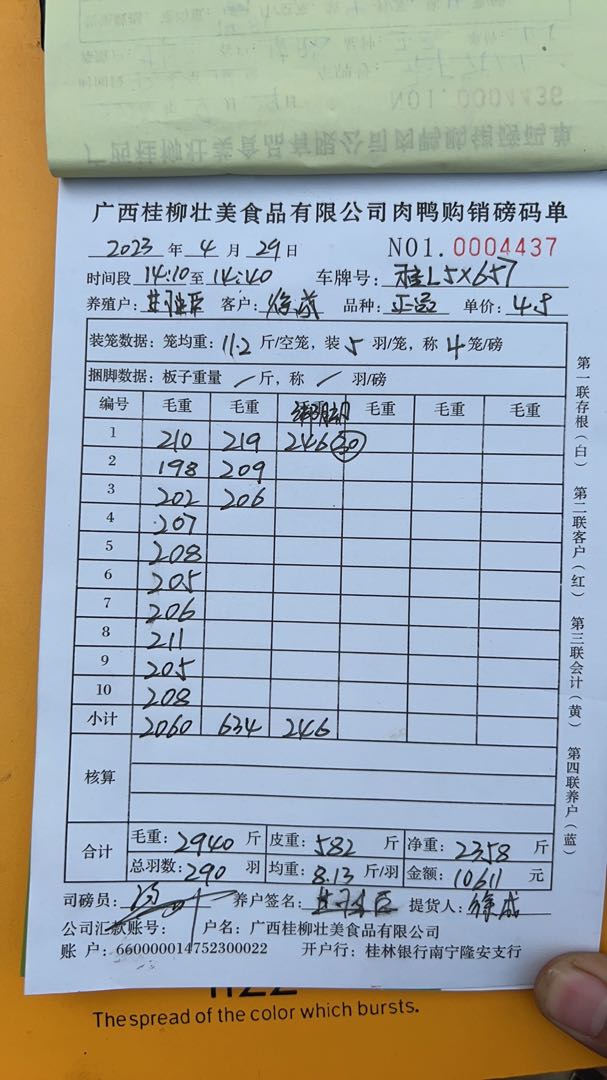 NO1.0004436
广西桂柳壮美食品有限公司肉鸭购销磅码单
广西桂柳壮美食品有限公司肉鸭购销磅码单
2023 年 4 月 29 日 NO1.0004437
时间段 14:10 至 14:40 车牌号: 桂L5X657
养殖户: 客户: 徐成 品种: 正品 单价: 4.5
装笼数据: 笼均重: 11.2 斤/空笼, 装 5 羽/笼, 称 4 笼/磅
捆脚数据: 板子重量 / 斤, 称 / 羽/磅
编号 毛重 毛重 毛重 毛重 毛重
1 210 219 246 30
2 198 209
3 202 206
4 207
5 208
6 205
7 206
8 211
9 205
10 208
小计 2060 634 246
核算
合计 毛重: 2940 斤 皮重: 582 斤 净重: 2358 斤
总羽数: 290 羽 均重: 8.13 斤/羽 金额: 10611 元
司磅员: 养户签名: 提货人: 徐成
公司汇款账号: 户名: 广西桂柳壮美食品有限公司
账 户: 660000014752300022 开户行: 桂林银行南宁隆安支行
第一联存根(白) 第二联客户(红) 第三联会计(黄) 第四联养户(蓝)
The spread of the color which bursts.